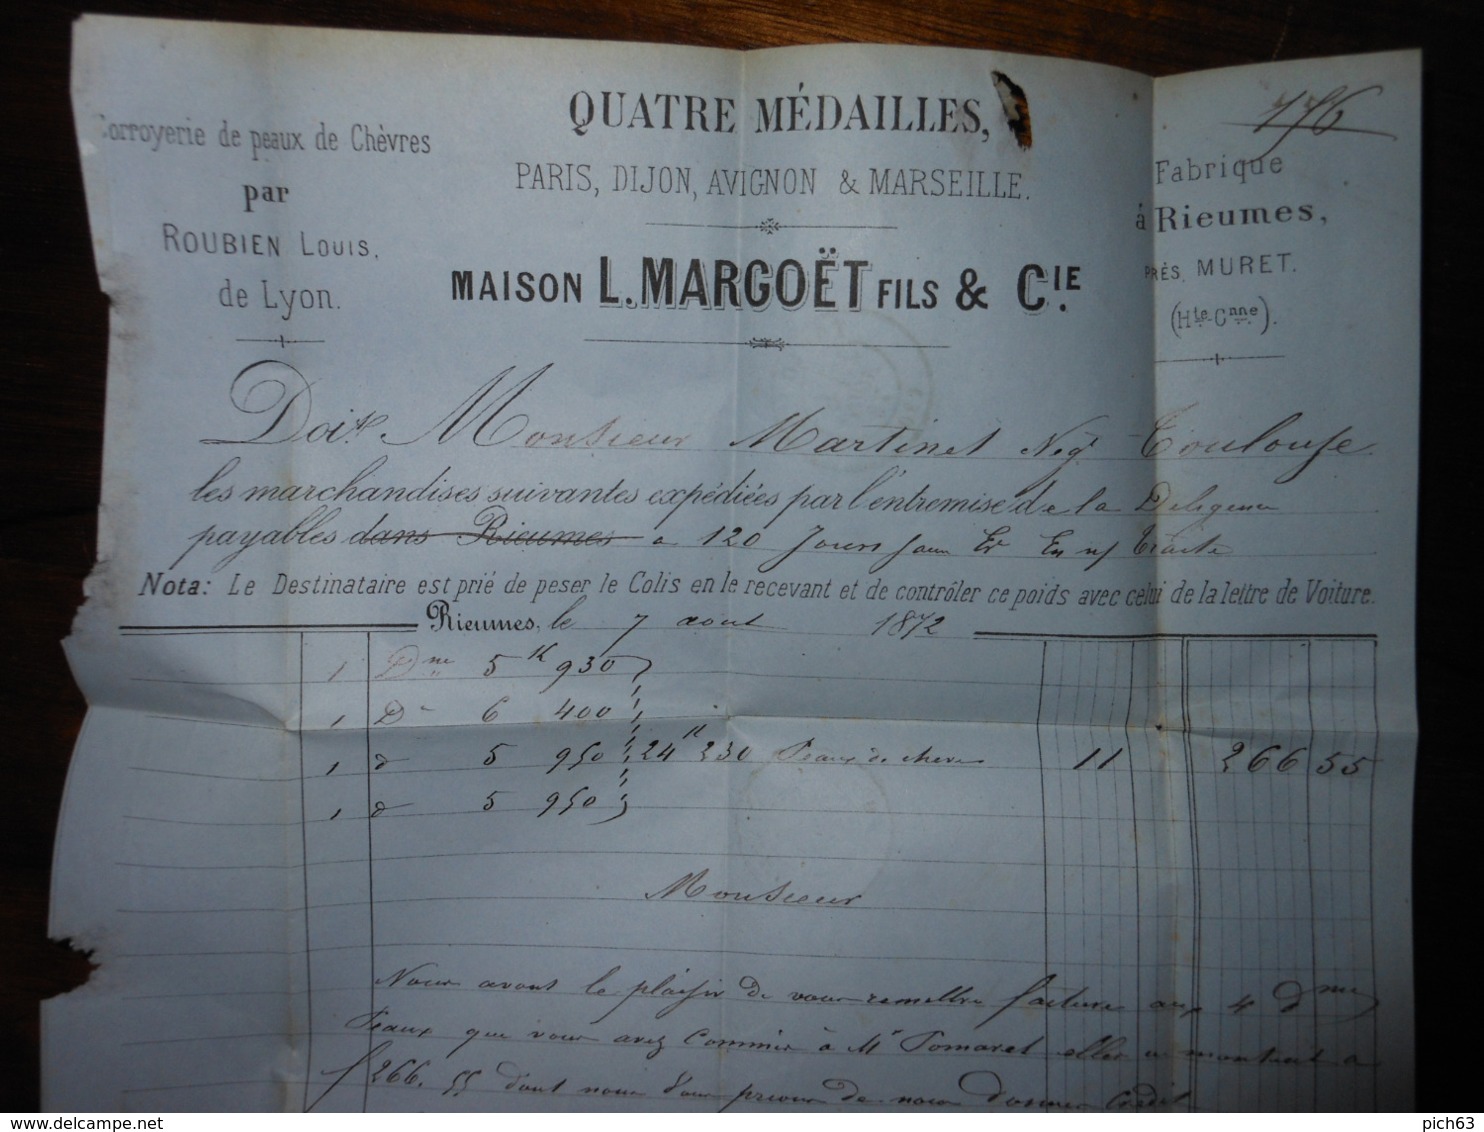 Corroyerie de peaux de Chèvres
par
ROUBIEN LOUIS,
de Lyon.
QUATRE MÉDAILLES,
PARIS, DIJON, AVIGNON & MARSEILLE.
MAISON L. MARGOËT FILS & CIE.
776
Fabrique
à Rieumes,
PRÈS, MURET.
(Hte-Gnne).
Doit Monsieur Martinet Negt Toulouse
les marchandises suivantes expédiées par l'entremise de la Diligence
payables dans Rieumes a 120 Jours
Nota: Le Destinataire est prié de peser le Colis en le recevant et de contrôler ce poids avec celui de la lettre de Voiture.
Rieumes, le 7 aout 1872
1 Dne 5 K 930
1 D 6 400
1 d 5 950 24 K 230 Peaux de chevre 11 266 55
1 d 5 950
Monsieur
Nous avons le plaisir de vous remettre facture aux 4 dnes
Peaux que vous avez Commis à Mr Pomaret elles se montent a
f 266. 55 dont nous vous prions de nous donner Crédit
delcampe.net
pich63